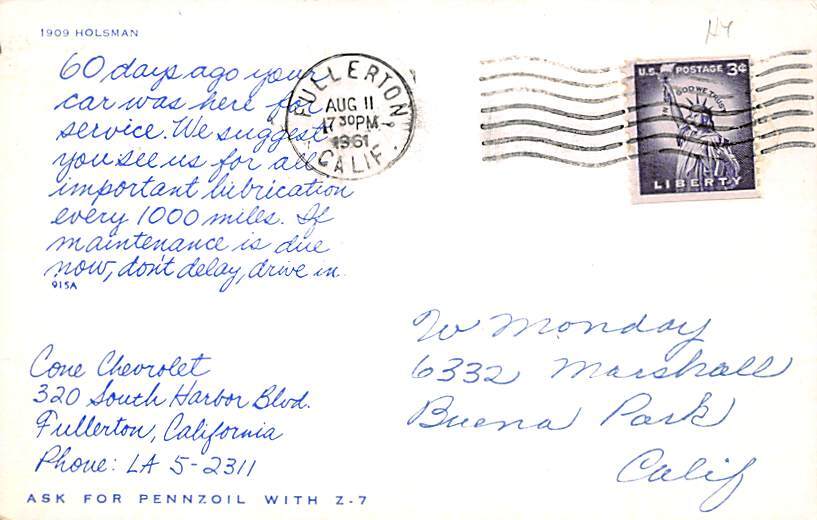 1909 HOLSMAN
60 days ago your
car was here for
service. We suggest
you see us for all
important lubrication
every 1000 miles. If
maintenance is due
now, don't delay, drive in.
915A
Cone Chevrolet
320 South Harbor Blvd.
Fullerton, California
Phone: LA 5-2311
ASK FOR PENNZOIL WITH Z-7
FULLERTON
AUG 11
730PM
1961
CALIF.
U.S. POSTAGE 3¢
IN GOD WE TRUST
LIBERTY
W Monday
6332 Marshall
Buena Park
Calif